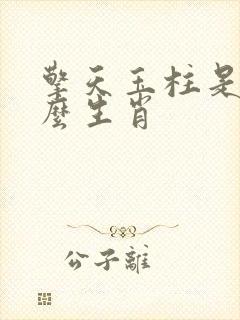 擎天玉柱是
麼生肖
公子離